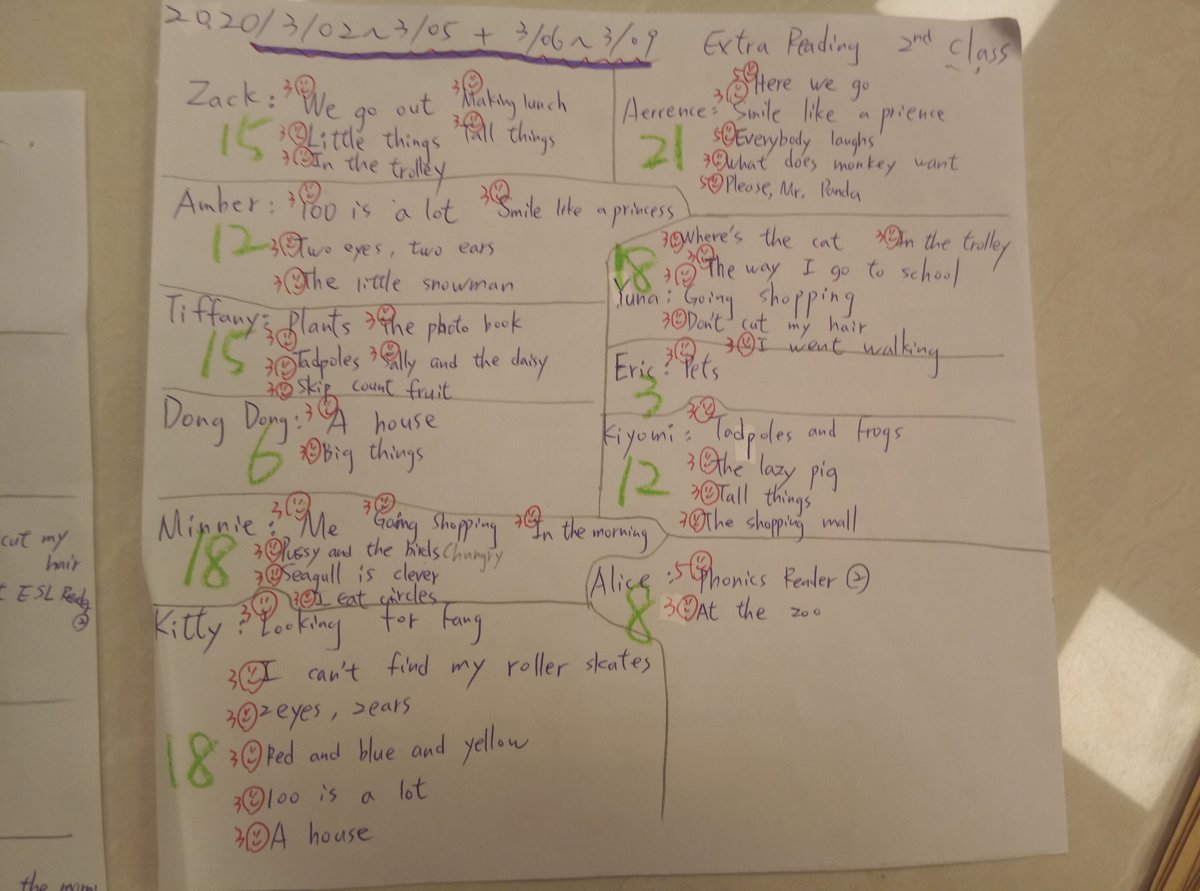 2020/3/02~3/05 + 3/06~3/09 Extra Reading 2nd class
Zack: 3 We go out 3 Making lunch
15 3 Little things 3 Tall things
3 In the trolley
5 Here we go
Aerrence: 3 Smile like a prience
21 5 Everybody laughs
3 What does monkey want
5 Please, Mr. Panda
Amber: 3 100 is a lot 3 Smile like a princess
12 3 Two eyes, two ears
3 The little snowman
3 Where's the cat 3 In the trolley
18 3 The way I go to school
Yuna: 3 Going shopping
3 Don't cut my hair
3 I went walking
Tiffany: 3 Plants 3 The photo book
15 3 Tadpoles 3 Sally and the daisy
3 Skip count fruit
Eric: 3 Pets
3
Dong Dong: 3 A house
6 3 Big things
Kiyomi: 3 Tadpoles and frogs
12 3 The lazy pig
3 Tall things
3 The shopping mall
Minnie: 3 Me 3 Going shopping 3 In the morning
18 3 Pussy and the birds (hungry
3 Seagull is clever
3 I eat circles
Alice: 5 Phonics Reader ②
8 3 At the zoo
Kitty: 3 Looking for Fang
3 I can't find my roller skates
3 2 eyes, 2 ears
18 3 Red and blue and yellow
3 100 is a lot
3 A house
cut my
hair
ESL Reading
②
the